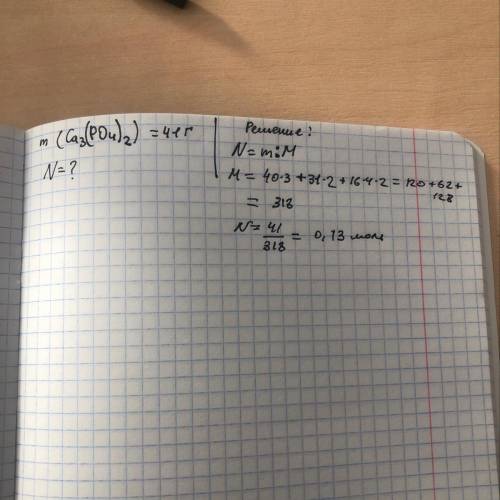 m (Ca₃(PO₄)₂) = 41 г
N = ?
Решение:
N = m : M
M = 40·3 + 31·2 + 16·4·2 = 120 + 62 +
128
= 313
N = 41/313 = 0,13 моль